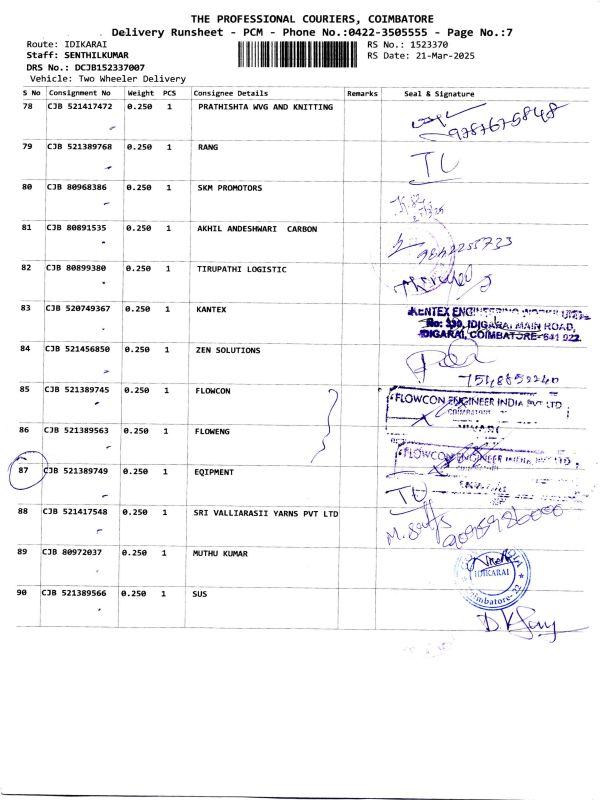 THE PROFESSIONAL COURIERS, COIMBATORE
Delivery Runsheet - PCM - Phone No.:0422-3505555 - Page No.:7
Route: IDIKARAI RS No.: 1523370
Staff: SENTHILKUMAR RS Date: 21-Mar-2025
DRS No.: DCJB152337007
Vehicle: Two Wheeler Delivery
S No Consignment No Weight PCS Consignee Details Remarks Seal & Signature
78 CJB 521417472 0.250 1 PRATHISHTA WVG AND KNITTING
9787675848
79 CJB 521389768 0.250 1 RANG
80 CJB 80968386 0.250 1 SKM PROMOTORS
81 CJB 80891535 0.250 1 AKHIL ANDESHWARI CARBON
9842255733
82 CJB 80899380 0.250 1 TIRUPATHI LOGISTIC
83 CJB 520749367 0.250 1 KANTEX
KENTEX ENGINEERING WORKS
No: 330, IDIGARAI MAIN ROAD,
IDIGARAI, COIMBATORE- 641 022.
84 CJB 521456850 0.250 1 ZEN SOLUTIONS
7548859240
85 CJB 521389745 0.250 1 FLOWCON
FLOWCON ENGINEER INDIA PVT LTD
86 CJB 521389563 0.250 1 FLOWENG
FLOWCON ENGINEER INDIA PVT LTD
87 CJB 521389749 0.250 1 EQIPMENT
88 CJB 521417548 0.250 1 SRI VALLIARASII YARNS PVT LTD
89 CJB 80972037 0.250 1 MUTHU KUMAR
IDIKARAI
Coimbatore- 22
90 CJB 521389566 0.250 1 SUS